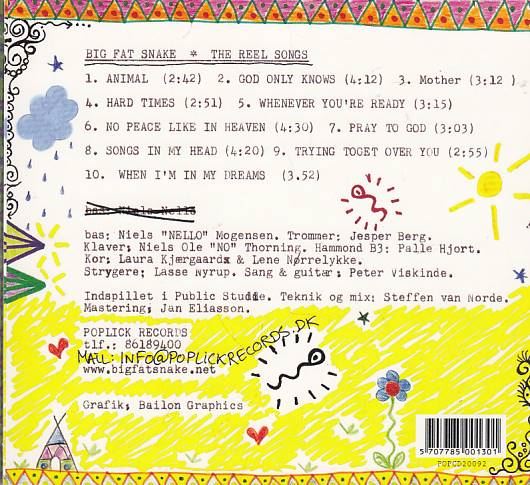 BIG FAT SNAKE * THE REEL SONGS
1. ANIMAL (2:42) 2. GOD ONLY KNOWS (4:12) 3. Mother (3:12 )
4. HARD TIMES (2:51) 5. WHENEVER YOU'RE READY (3:15)
6. NO PEACE LIKE IN HEAVEN (4:30) 7. PRAY TO GOD (3:03)
8. SONGS IN MY HEAD (4:20) 9. TRYING TOGET OVER YOU (2:55)
10. WHEN I'M IN MY DREAMS (3.52)
bas: Niels Nello
bas; Niels "NELLO" Mogensen. Trommer; Jesper Berg.
Klaver; Niels Ole "NO" Thorning. Hammond B3: Palle Hjort.
Kor; Laura Kjærgaard & Lene Nørrelykke.
Strygere; Lasse Nyrup. Sang & guitar; Peter Viskinde.
Indspillet i Public Studie. Teknik og mix: Steffen van Norde.
Mastering; Jan Eliasson.
POPLICK RECORDS
tlf.: 86189400
MAIL: INFO@POPLICKRECORDS.DK
www.bigfatsnake.net
Grafik; Bailon Graphics
5 707785 001301
POPCD20092